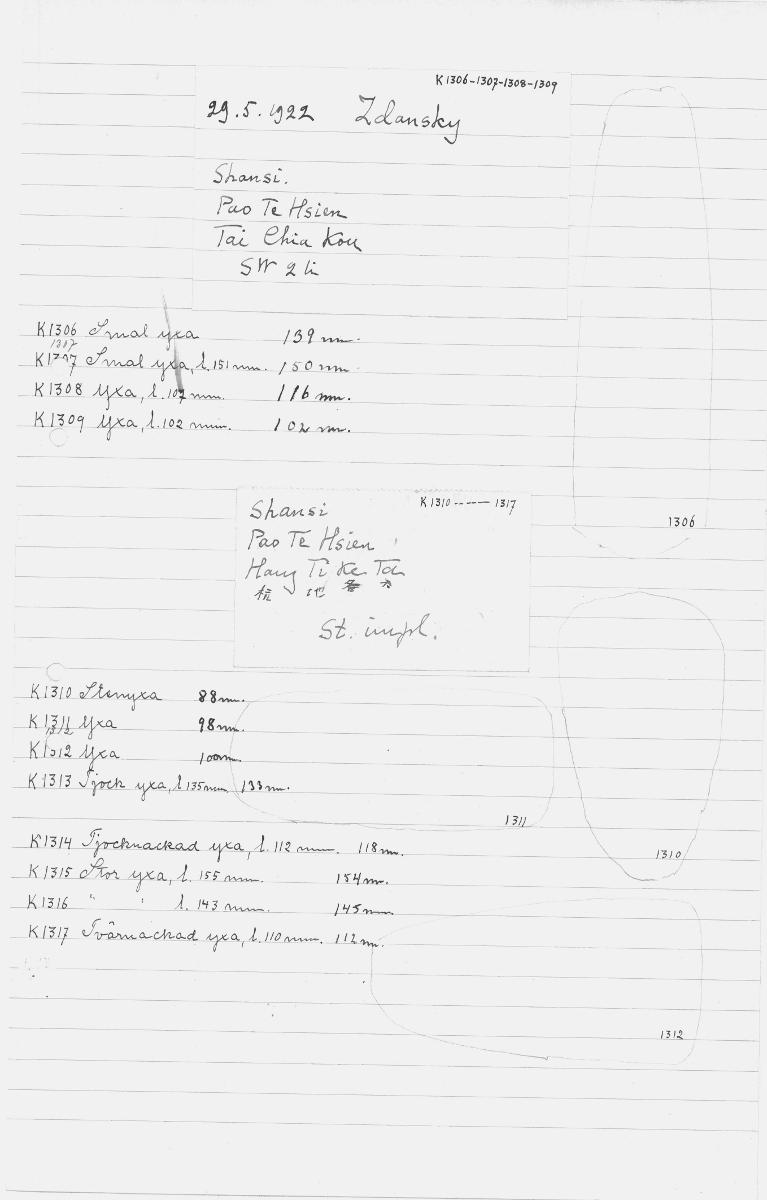 K1306-1307-1308-1309
29.5.1922 Zdansky
Shansi.
Pao Te Hsien
Tai Chia Kou
SW 2 li
K1306 Smal yxa 139 mm.
1317
K1307 Smal yxa, l. 151 mm. 150 mm.
K1308 Yxa, l. 107 mm. 116 mm.
K1309 Yxa, l. 102 mm. 102 mm.
1306
K1310------1317
Shansi
Pao Te Hsien
Hang Ti Ke Ta
杭 地
St. impl.
K1310 Stenyxa 88 mm.
K1311 Yxa 98 mm.
1312
K1312 Yxa 100 mm.
K1313 Tjock yxa, l 135 mm 133 mm.
1311
K1314 Tjocknackad yxa, l. 112 mm. 118 mm.
1310
K1315 Stor yxa, l. 155 mm. 154 mm.
K1316 " " l. 143 mm. 145 mm
K1317 Tvärnackad yxa, l. 110 mm. 112 mm.
1312